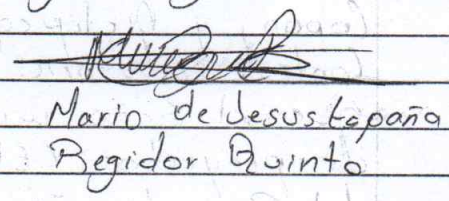 Mario de Jesus tapaña
Regidor Quinto